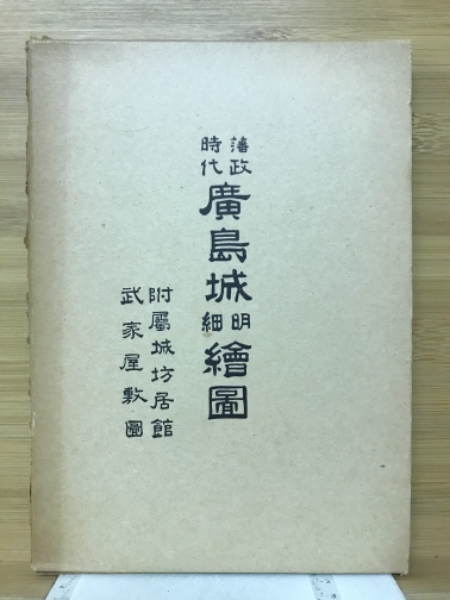 藩政時代廣島城明細繪圖
附屬城坊居館
武家屋敷圖